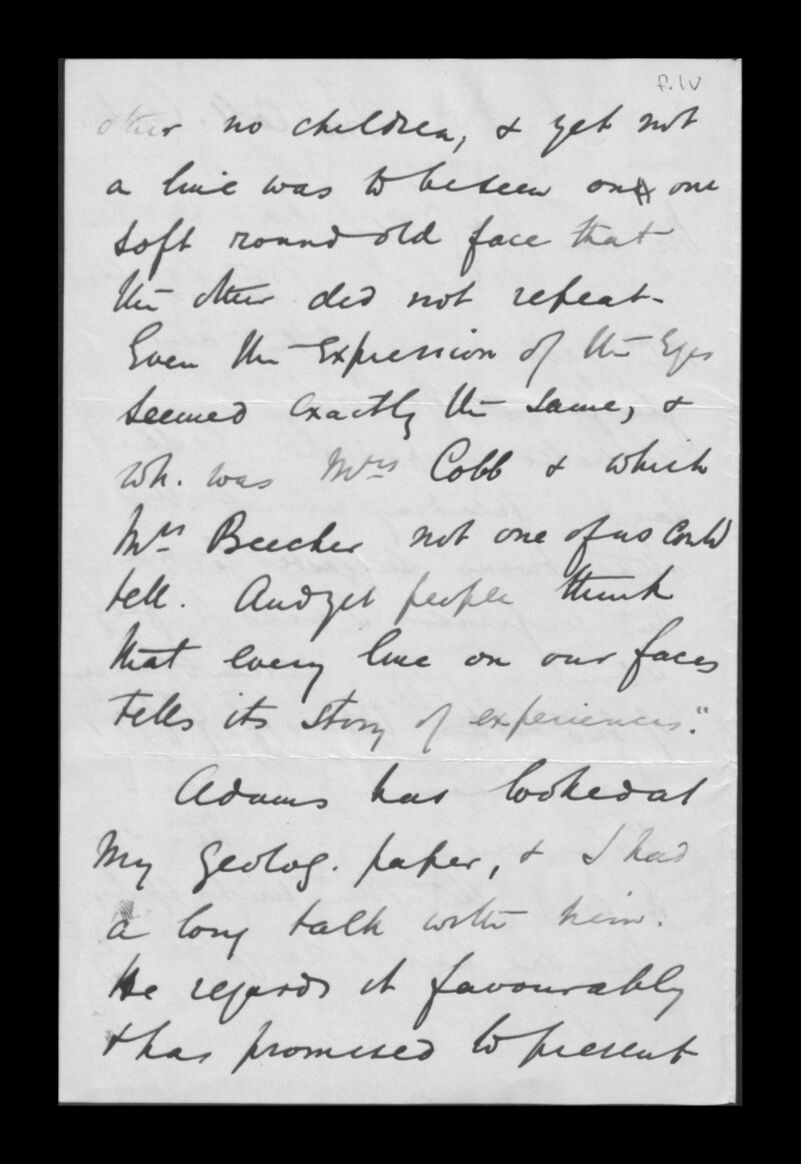 f.1v
other no children, & yet not
a line was to be seen on one
soft round old face that
the other did not repeat -
Even the Expression of the Eyes
seemed Exactly the same, &
wh. was Mrs Cobb & which
Mrs Beecher not one of us could
tell. And yet people think
that every line on our faces
tells its story of experiences."
Adams has looked at
My Geolog. paper, & I had
a long talk with him.
He regards it favourably
& has promised to present